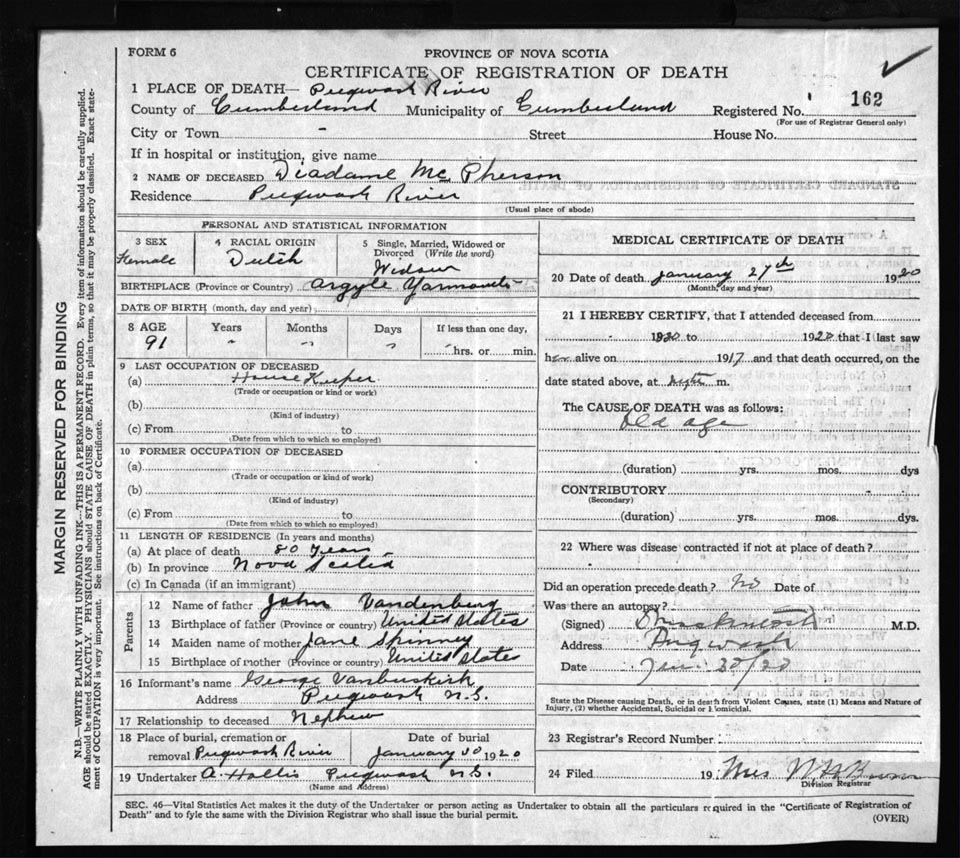 FORM 6
PROVINCE OF NOVA SCOTIA
CERTIFICATE OF REGISTRATION OF DEATH
1 PLACE OF DEATH— Pugwash River
County of Cumberland Municipality of Cumberland Registered No. 162
(For use of Registrar General only)
City or Town - Street House No.
If in hospital or institution, give name
2 NAME OF DECEASED Diadame Mc Pherson
Residence Pugwash River
(Usual place of abode)
PERSONAL AND STATISTICAL INFORMATION
3 SEX
Female
4 RACIAL ORIGIN
Dutch
5 Single, Married, Widowed or
Divorced (Write the word)
Widow
BIRTHPLACE (Province or Country) Argyle Yarmouth
DATE OF BIRTH (month, day and year)
8 AGE Years Months Days If less than one day,
91 " " " hrs. or min.
9 LAST OCCUPATION OF DECEASED
(a) House Keeper
(Trade or occupation or kind or work)
(b)
(Kind of industry)
(c) From to
(Date from which to which so employed)
10 FORMER OCCUPATION OF DECEASED
(a)
(Trade or occupation or kind of work)
(b)
(Kind of industry)
(c) From to
(Date from which to which so employed)
11 LENGTH OF RESIDENCE (In years and months)
(a) At place of death 80 Years
(b) In province Nova Scotia
(c) In Canada (if an immigrant)
Parents
12 Name of father John Vandenburg
13 Birthplace of father (Province or country) United States
14 Maiden name of mother Jane Spinney
15 Birthplace of mother (Province or country) United States
16 Informant's name George Vanbuskirk
Address Pugwash N.S.
17 Relationship to deceased Nephew
18 Place of burial, cremation or Date of burial
removal Pugwash River January 30 1920
19 Undertaker A. Hollis Pugwash N.S.
(Name and Address)
MEDICAL CERTIFICATE OF DEATH
20 Date of death January 27th 1920
(Month, day and year)
21 I HEREBY CERTIFY, that I attended deceased from
1920 to 1920 that I last saw
her alive on 1917 and that death occurred, on the
date stated above, at m.
The CAUSE OF DEATH was as follows:
Old age
(duration) yrs. mos. dys
CONTRIBUTORY
(Secondary)
(duration) yrs. mos. dys.
22 Where was disease contracted if not at place of death?
Did an operation precede death? No Date of
Was there an autopsy?
(Signed) M.D.
Address Pugwash
Date Jan 30/20
State the Disease causing Death, or in death from Violent Causes, state (1) Means and Nature of
Injury, (2) whether Accidental, Suicidal or Homicidal.
23 Registrar's Record Number
24 Filed 19 Mrs
Division Registrar
SEC. 46—Vital Statistics Act makes it the duty of the Undertaker or person acting as Undertaker to obtain all the particulars required in the "Certificate of Registration of
Death" and to fyle the same with the Division Registrar who shall issue the burial permit.
(OVER)
MARGIN RESERVED FOR BINDING
N.B.—WRITE PLAINLY WITH UNFADING INK—THIS IS A PERMANENT RECORD. Every item of information should be carefully supplied.
AGE should be stated EXACTLY. PHYSICIANS should STATE CAUSE OF DEATH in plain terms, so that it may be properly classified. Exact state-
ment of OCCUPATION is very important. See instructions on back of Certificate.